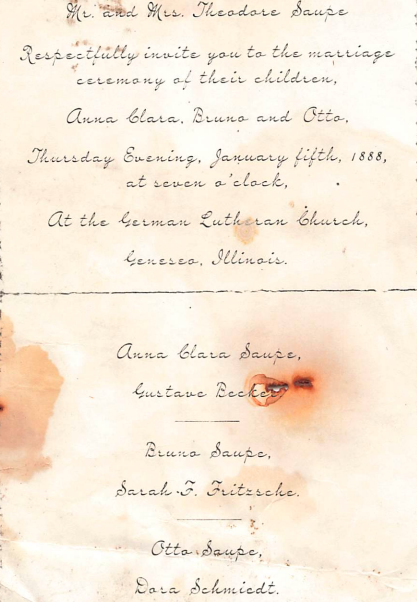 Mr. and Mrs. Theodore Saupe
Respectfully invite you to the marriage
ceremony of their children,
Anna Clara, Bruno and Otto,
Thursday Evening, January fifth, 1888,
at seven o'clock,
At the German Lutheran Church,
Geneseo, Illinois.
Anna Clara Saupe,
Gustave Becker
Bruno Saupe,
Sarah F. Fritzsche.
Otto Saupe,
Dora Schmiedt.